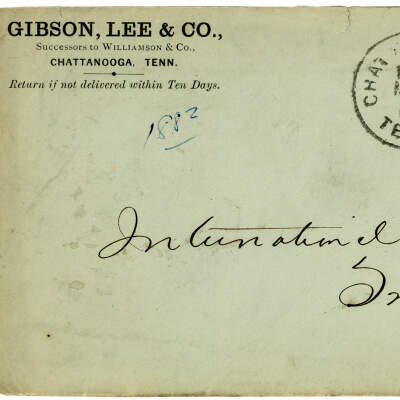 GIBSON, LEE & CO.,
Successors to WILLIAMSON & CO.,
CHATTANOOGA, TENN.
Return if not delivered within Ten Days.
CHAT
TE
1882
International